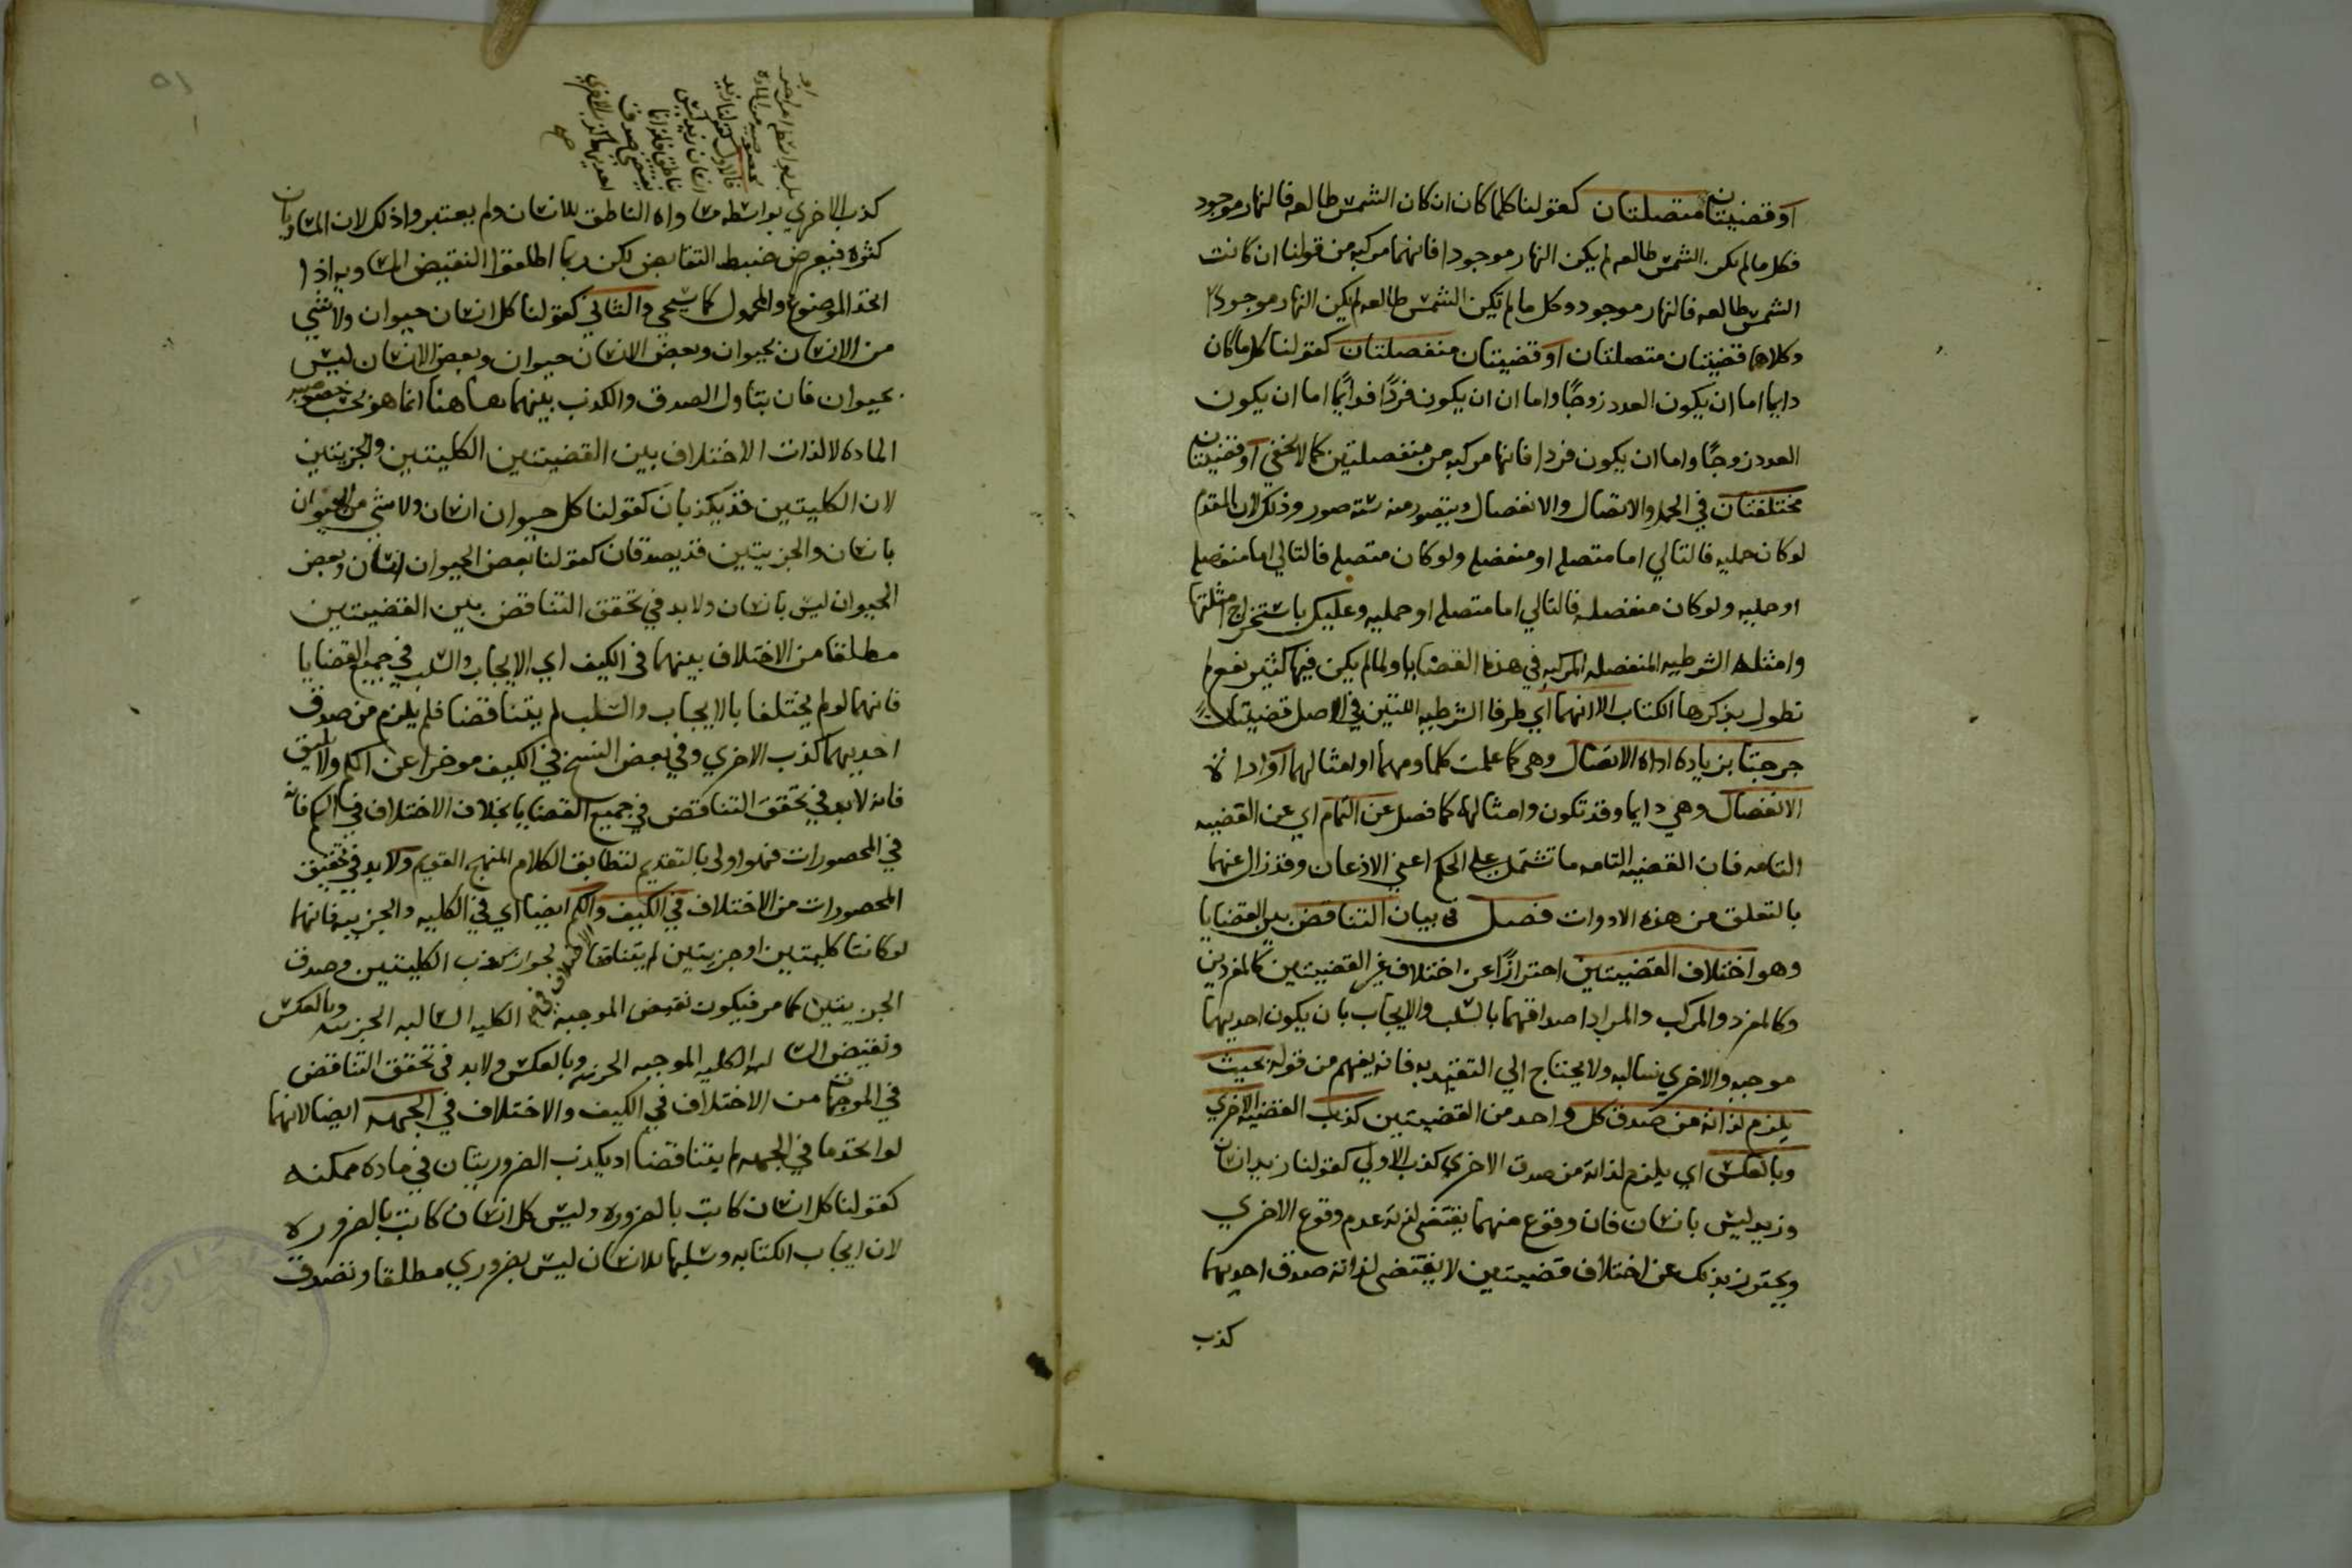 او قضيتان متصلتان كقولنا كلما كان ان كان الشمس طالعه فالنهار موجود
فكل ما لم تكن الشمس طالعه لم يكن النهار موجودا فانهما مركبه من قولنا ان كانت
الشمس طالعه فالنهار موجود وكل ما لم تكن الشمس طالعه لم يكن النهار موجودا
وكلاهما قضيتان متصلتان او قضيتان منفصلتان كقولنا كل ما كان
دايما اما ان يكون العدد زوجًا واما ان ان يكون فردًا فدايمًا اما ان يكون
العدد زوجًا واما ان يكون فردا فانها مركبه من منفصلتين كما لا يخفي او قضيتان
مختلفتان في الحمل والاتصال والانفصال ويتصور منه سته صور وذلك لان المقدم
لو كان حمليه فالتالي اما متصله او منفصله ولو كان متصله فالتالي اما منفصله
او حمليه ولو كان منفصله فالتالي اما متصله او حمليه وعليك باستخراج امثلتها
وامثله الشرطيه المنفصله المركبه في هذه القضايا ولما لم يكن فيها كثير نفع لم
نطول بذكرها الكتاب الا انهما اي طرفا الشرطيه اللتين في الاصل قضيتان
خرجتا بزيادة اداة الاتصال وهي كما علمت كلما ومهما وامثالهما او اداة
الانفصال وهي دايما وقد تكون وامثالها كما فصل عن التمام اي عن القضيه
التامه فان القضيه التامه ما تشتمل علي الحكم اعني الاذعان وقد زال عنهما
بالتعلق من هذه الادوات فصل في بيان التناقض بين القضايا
وهو اختلاف القضيتين احترازًا عن اختلاف غير القضيتين كالمفردين
وكالمفرد والمركب والمراد اختلافهما بالسلب والايجاب بان يكون احديهما
موجبه والاخري سالبه ولا يحتاج الي التقييد به فانه يفهم من قوله بحيث
يلزم لذاته من صدق كل واحد من القضيتين كذب القضيه الاخري
وبالعكس اي يلزم لذاته من صدق الاخري كذب الاولي كقولنا زيد انسان
وزيد ليس بانسان فان وقوع منهما يقتضي لذاته عدم وقوع الاخري
ويحترز بذلك عن اختلاف قضيتين لا يقتضي لذاته صدق احديهما
كذب
كذب الاخري بواسطه مساواه الناطق للانسان ولم يعتبروا ذلك لان المساويات
كثره فيعرض ضبط النقايض لكن ربما اطلقوا النقيض المساويه اذا
اتحد الموضوع والمحمول كما سيجي والثاني كقولنا كل انسان حيوان ولا شي
من الانسان بحيوان وبعض الانسان حيوان وبعض الانسان ليس
بحيوان فان تناول الصدق والكذب بينهما هاهنا انما هو بحسب خصوصيه
الماده لا لذات الاختلاف بين القضيتين الكليتين والجزييتين
لان الكليتين قد يكذبان كقولنا كل حيوان انسان ولا شي من الحيوان
بانسان والجزييتين قد يصدقان كقولنا بعض الحيوان انسان وبعض
الحيوان ليس بانسان ولا بد في تحقق التناقض بين القضيتين
مطلقا من الاختلاف بينهما في الكيف اي الايجاب والسلب في جميع القضايا
فانهما لو لم يختلفا بالايجاب والسلب لم يتناقضا فلم يلزم من صدق
احديهما كذب الاخري وفي بعض النسخ في الكيف موخرا عن الكم ولا يليق
فانه لا بد في تحقق التناقض في جميع القضايا بخلاف الاختلاف في الكم فانه
في المحصورات فهو اولي بالتقديم لتطابق الكلام المنهج القويم ولا بد في تحقيق
المحصورات من الاختلاف في الكيف والكم ايضا اي في الكليه والجزييه فانهما
لو كانتا كليتين او جزييتين لم يتناقضا لجواز كذب الكليتين وصدق
الجزييتين كما مر فيكون نقيض الموجبه الكليه السالبه الجزييه وبالعكس
ونقيض السالبه الكليه الموجبه الجزييه وبالعكس ولا بد في تحقق التناقض
في الموجهات من الاختلاف في الكيف والاختلاف في الجهه ايضا لانهما
لو اتحدتا في الجهه لم يتناقضا اذ يكذب الضروريتان في ماده ممكنه
كقولنا كل انسان كاتب بالضروره وليس كل انسان كاتب بالضروره
لان ايجاب الكتابه وسلبها للانسان ليس بضروري مطلقا وتصدق